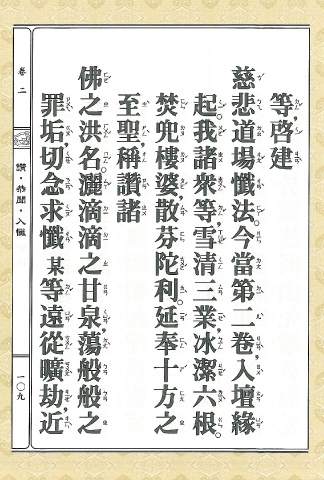 等，啓建
慈悲道場懺法。今當第二卷，入壇緣
起。我諸衆等，雪清三業，冰潔六根。
焚兜樓婆，散芬陀利。延奉十方之
至聖，稱讚諸
佛之洪名。灑滴滴之甘泉，蕩般般之
罪垢，切念求懺某等，遠從曠劫，近
卷二
讚·恭聞·入懺
一〇九